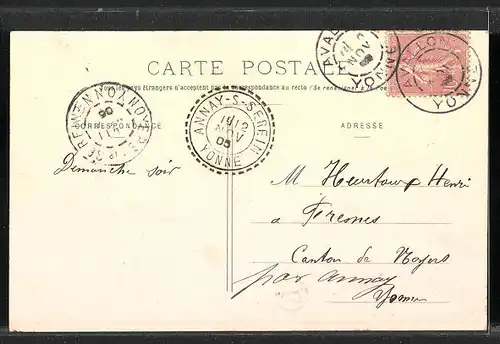 CARTE POSTALE
Tous les pays étrangers n'acceptent pas la correspondance au recto (Se renseigner
CORRESPONDANCE
ADRESSE
AVALLON
NOV
YONNE
AVALLON
YONNE
NOYERS-S-SEREIN
YONNE
ANNAY-S-SEREIN
19 12
NOV
05
YONNE
Dimanche soir
M Heurtaux Henri
a Fresnes
Canton de Noyers
par Annay
Yonne